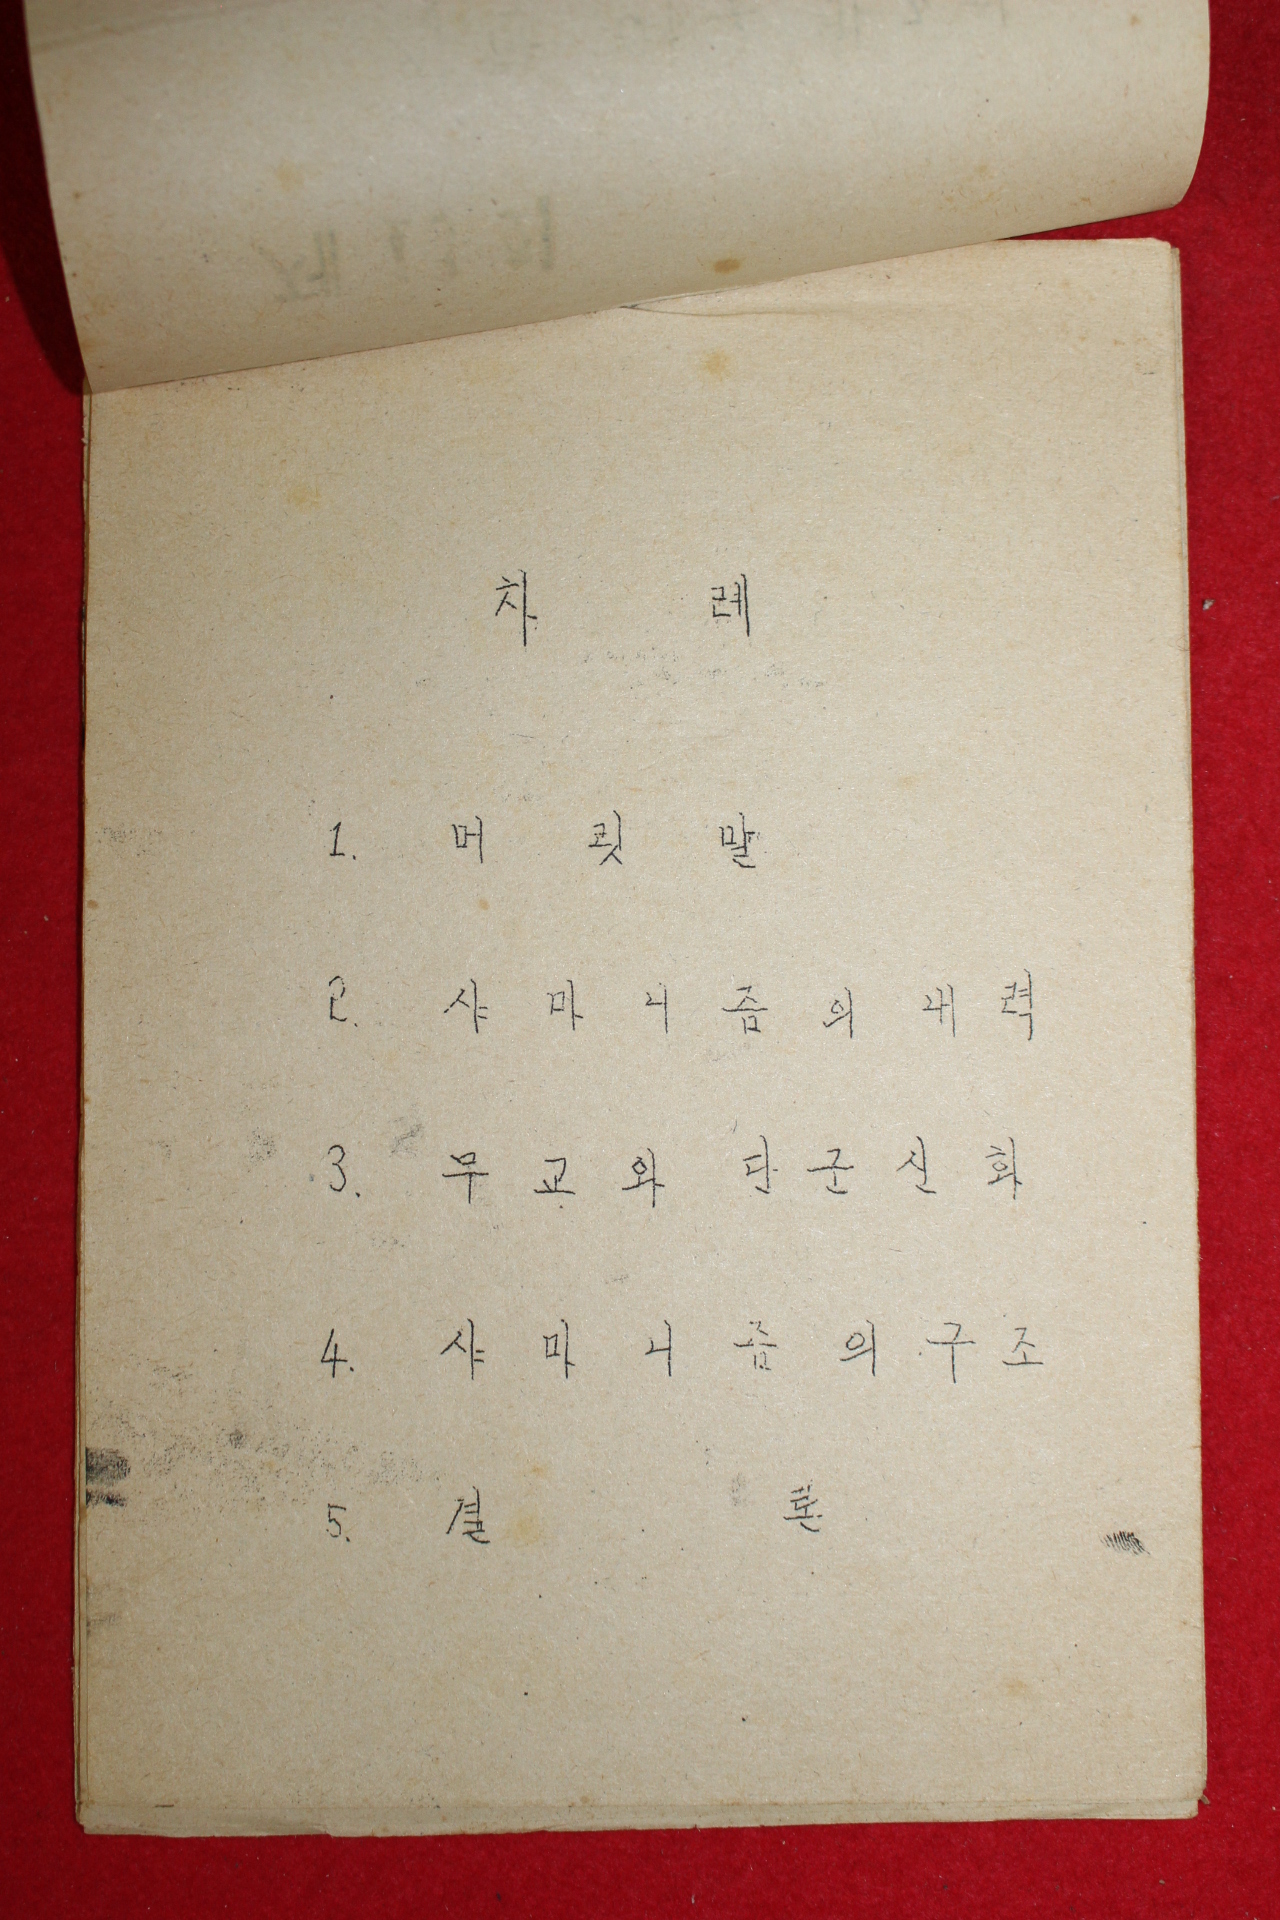 차 례
1. 머 릿 말
2. 샤 마 니 즘 의 내 력
3. 무 교 와 단 군 신 화
4. 샤 마 니 즘 의 구 조
5. 결 론